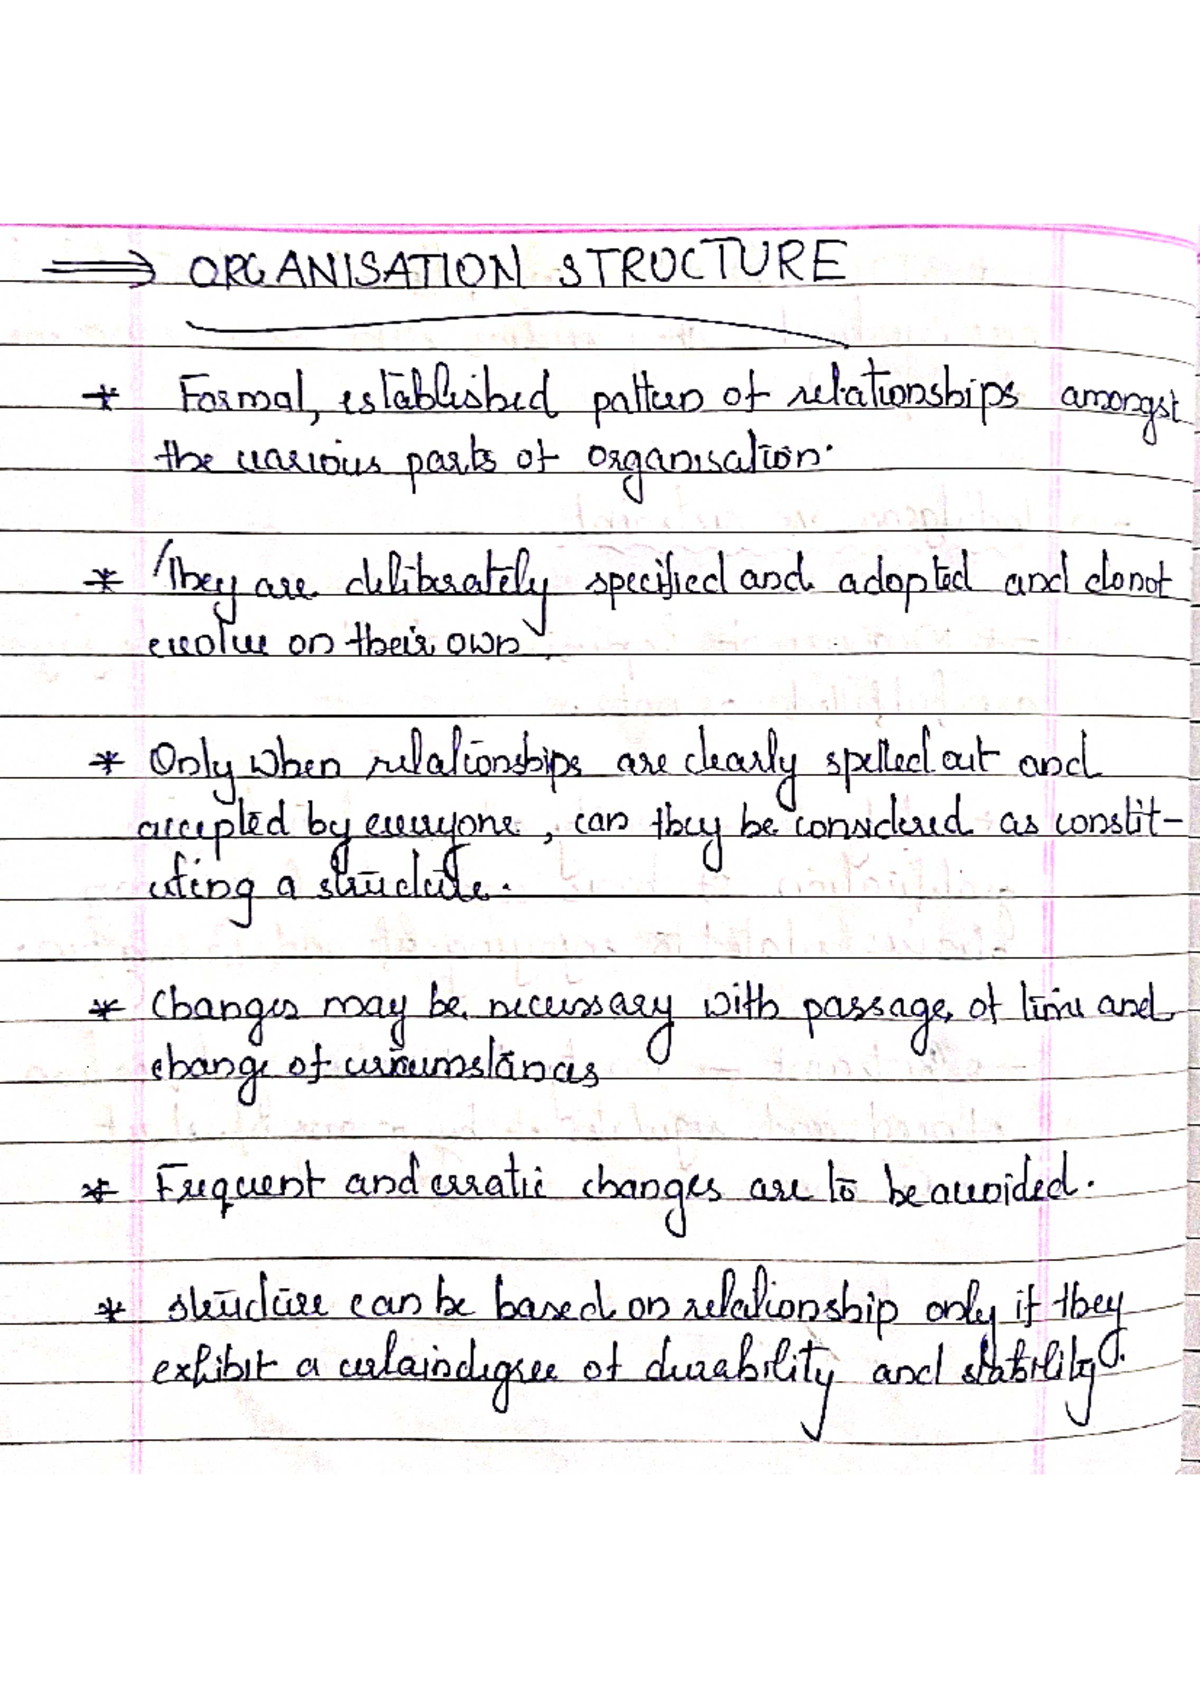 ⟹ ORGANISATION STRUCTURE
* Formal, established pattern of relationships amongst
the various parts of organisation.
* They are deliberately specified and adopted and donot
evolve on their own
* Only when relationships are clearly spelled out and
accepted by everyone, can they be considered as constit-
uting a structure.
* Changes may be necessary with passage of time and
change of circumstances
* Frequent and erratic changes are to be avoided.
* structure can be based on relationship only if they
exhibit a certain degree of durability and stability.